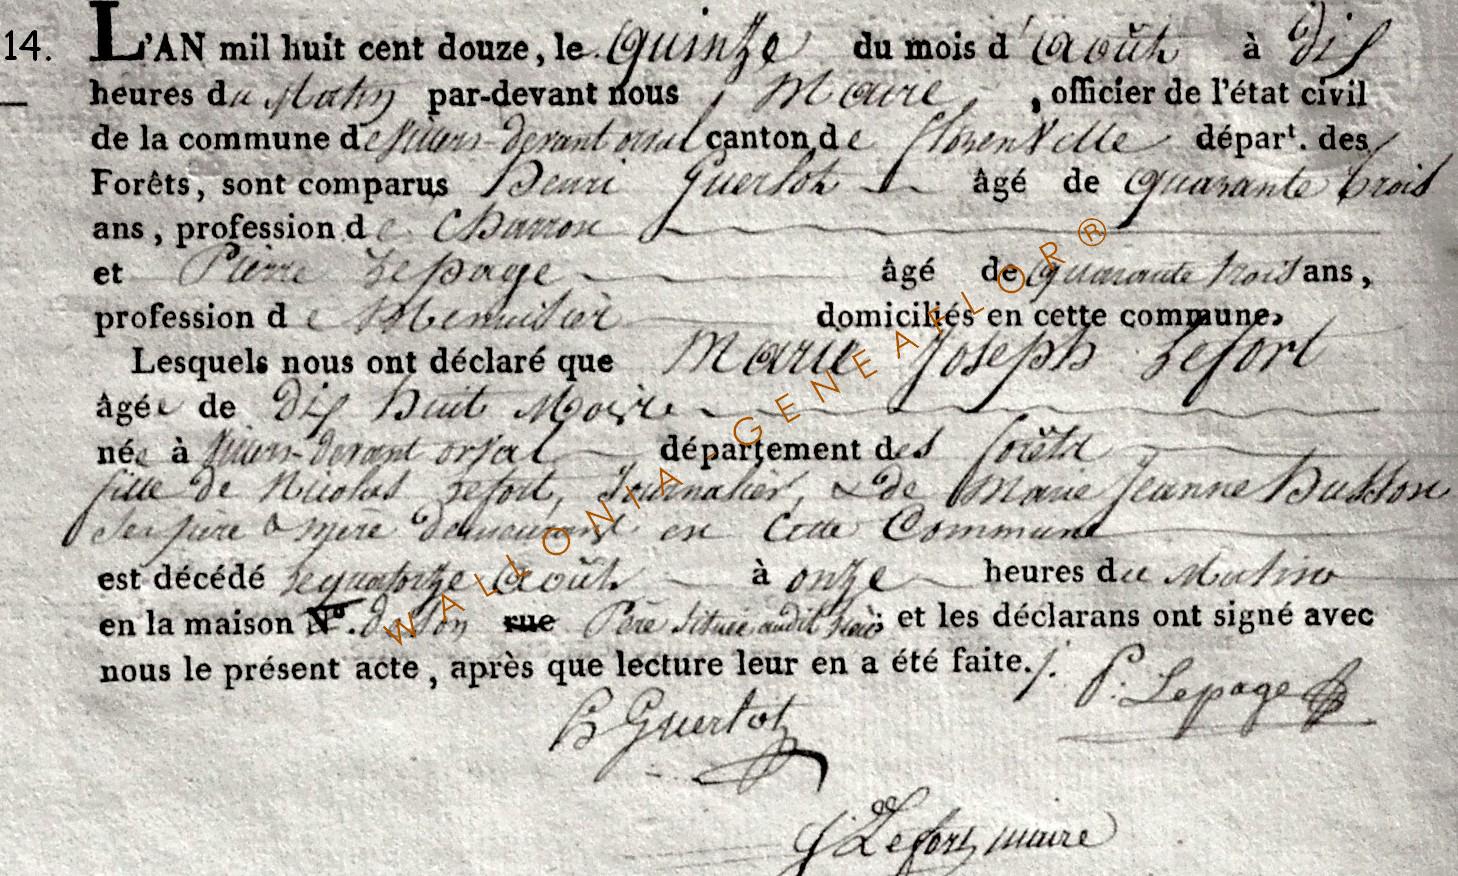 14. L'AN mil huit cent douze, le quinze du mois d'Août à dix
heures du Matin par-devant nous Maire, officier de l'état civil
de la commune de Villers-devant orval canton de florenville départ. des
Forêts, sont comparus Henri Guerlot âgé de quarante trois
ans, profession de Charron
et Pierre Lepage âgé de quarante trois ans,
profession de Menuisier domiciliés en cette commune,
Lesquels nous ont déclaré que Marie Joseph Lefort
âgée de dix huit Mois
née à Villers-devant orval département des forêts
fille de Nicolas Lefort, Journalier, & de Marie Jeanne Husson
Ses père & mère demeurant en Cette Commune
est décédé le quatorze Août à onze heures du Matin
en la maison N°. de son rue Père située audit lieu; et les déclarans ont signé avec
nous le présent acte, après que lecture leur en a été faite./. P. Lepage
H Guerlot
J Lefort maire
WALLONIA-GENEAFLOR®